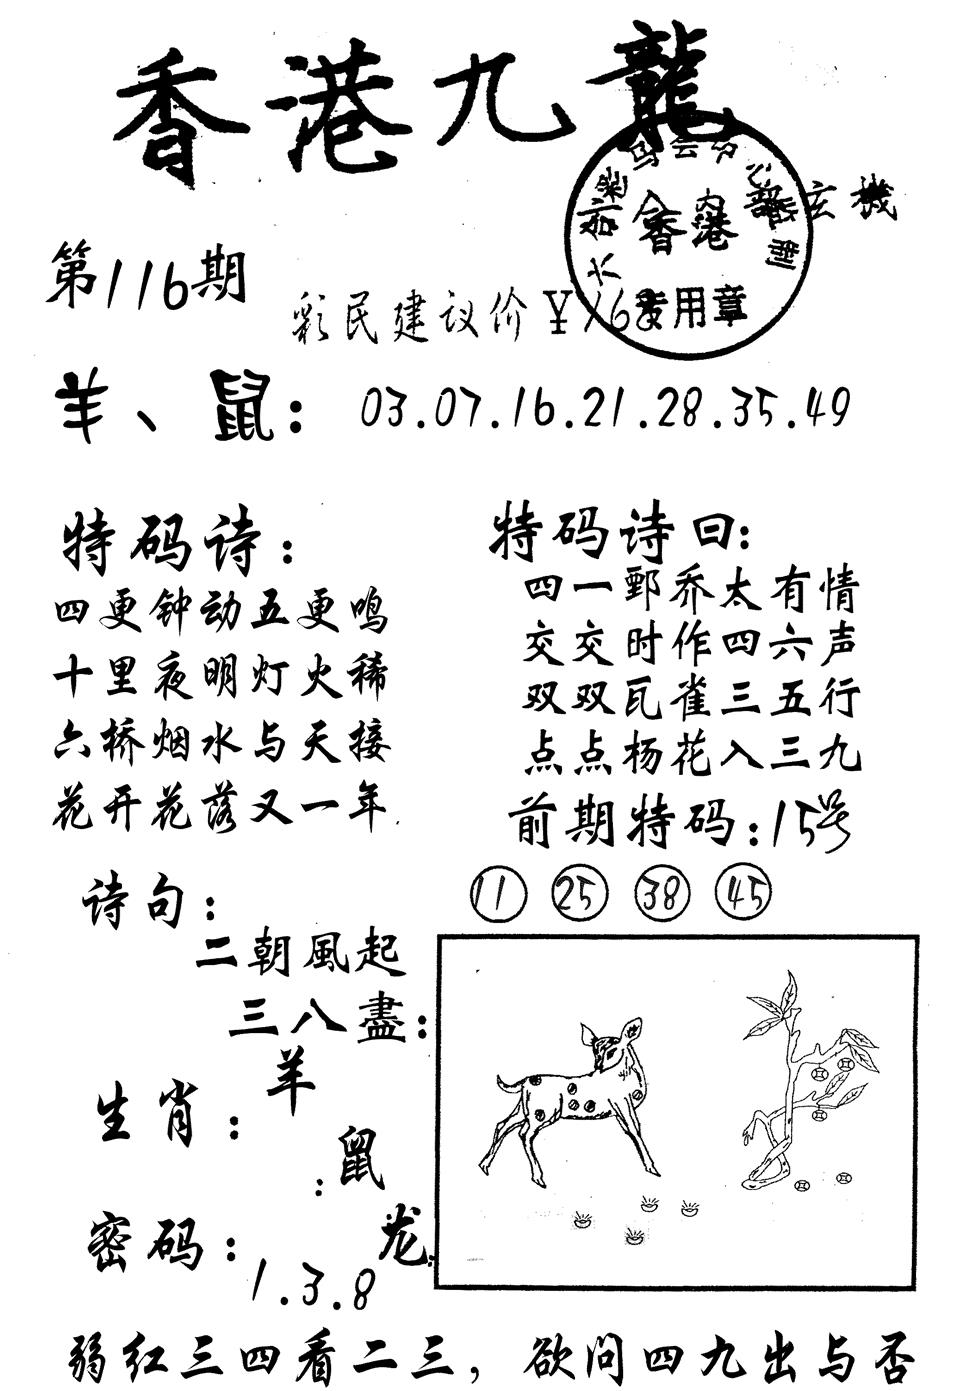 香港九龍
玄機
第116期
香港
专用章
彩民建议价￥168
羊、鼠：03.07.16.21.28.35.49
特码诗：
四更钟动五更鸣
十里夜明灯火稀
六桥烟水与天接
花开花落又一年
特码诗曰：
四一鄄乔太有情
交交时作四六声
双双瓦雀三五行
点点杨花入三九
前期特码：15号
11 25 38 45
诗句：
二朝風起
三八盡：
生肖：羊
：鼠
龙：
密码：1.3.8
弱红三四看二三，欲问四九出与否